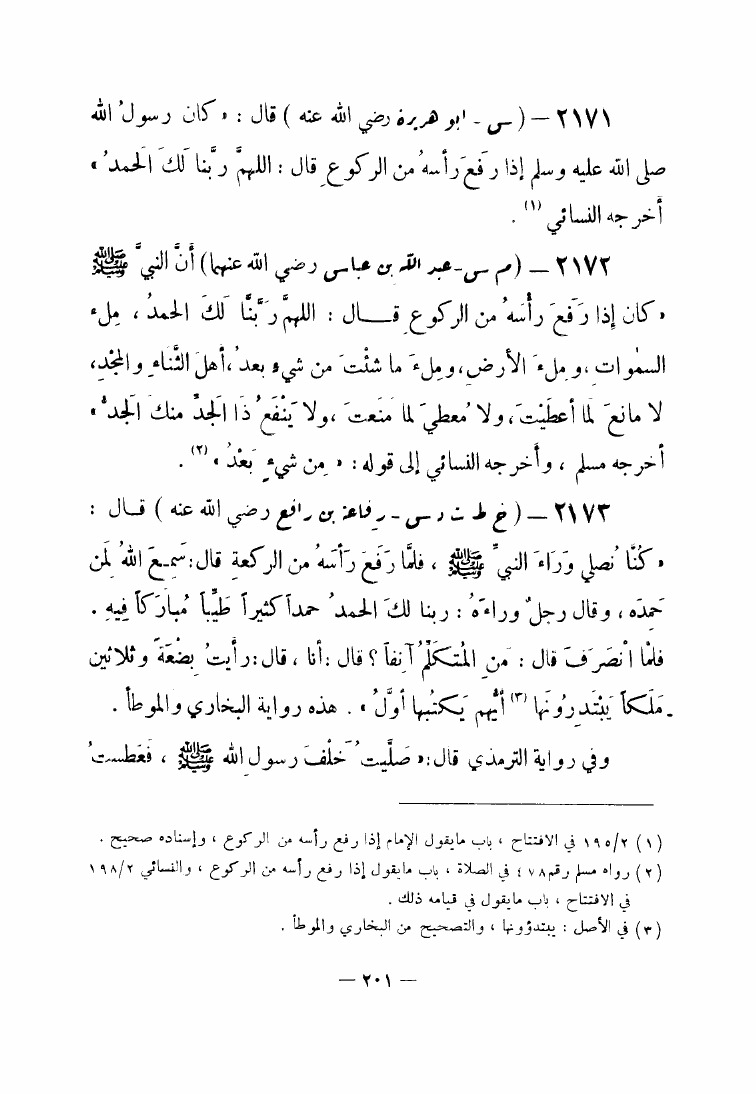 ٢١٧١ – ( س - ابو هريرة رضي الله عنه ) قال : « كان رسولُ الله
صلى الله عليه وسلم إذا رَفَعَ رَأسهُ من الركوعِ قال : اللهمَّ رَبَّنا لَكَ الحمدُ »
أخرجه النسائي (١) .
٢١٧٢ – (م س - عبد الله بن عباس رضي الله عنهما) أنَّ النبيَّ ﷺ
« كان إذا رَفَعَ رَأْسَهُ من الركوعِ قـــال : اللهمَّ رَبَّنَّا لَكَ الحمدُ ، مِلءَ
السمٰوات ، ومِلءَ الأرضِ ، ومِلءَ ما شئْتَ من شيءٍ بعدُ ، أهلَ الثَّناءِ والمجْدِ ،
لا مانعَ لِمَا أعطَيْتَ ، ولا مُعطيَ لما مَنَعتَ ، ولا يَنْفَعُ ذَا الجَدِّ منكَ الجدُّ »
أخرجه مسلم ، وأخرجه النسائي إلى قوله : « مِن شيءٍ بَعْدُ » (٢) .
٢١٧٣ – ( خ ط ت د س - رفاعة بن رافع رضي الله عنه ) قــال :
« كُنَّا نُصلي وَرَاءَ النبيِّ ﷺ ، فلمَّا رَفَعَ رَأسَهُ من الركعةِ قال : سَمِعَ اللهُ لِمَن
حَمِدَه ، وقال رجلٌ وراءَهُ : ربنا لكَ الحمدُ حمداً كثيراً طَيِّباً مُبارَكاً فِيهِ .
فلمَّا انْصَرَفَ قال : مَنِ المُتَكلِّمُ آنِفاً ؟ قال : أنا ، قال : رأيتُ بِضْعَةً وثلاثين
مَلَكاً يَبْتَدِرُونَها (٣) أيُّهم يَكتُبها أوَّلُ » . هذه رواية البخاري والموطأ .
وفي رواية الترمذي قال : « صَلَّيتُ خَلْفَ رسول الله ﷺ ، فَعَطستُ
(١) ١٩٥/٢ في الافتتاح ، باب مايقول الإمام إذا رفع رأسه من الركوع ، وإسناده صحيح .
(٢) رواه مسلم رقم ٤٧٨ في الصلاة ، باب مايقول إذا رفع رأسه من الركوع ، والنسائي ١٩٨/٢
في الافتتاح ، باب مايقول في قيامه ذلك .
(٣) في الأصل : يبتدؤونها ، والتصحيح من البخاري والموطأ .
— ٢٠١ —